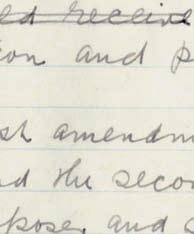 ed receive
ion and p
st amendm
nd the secon
pose, and